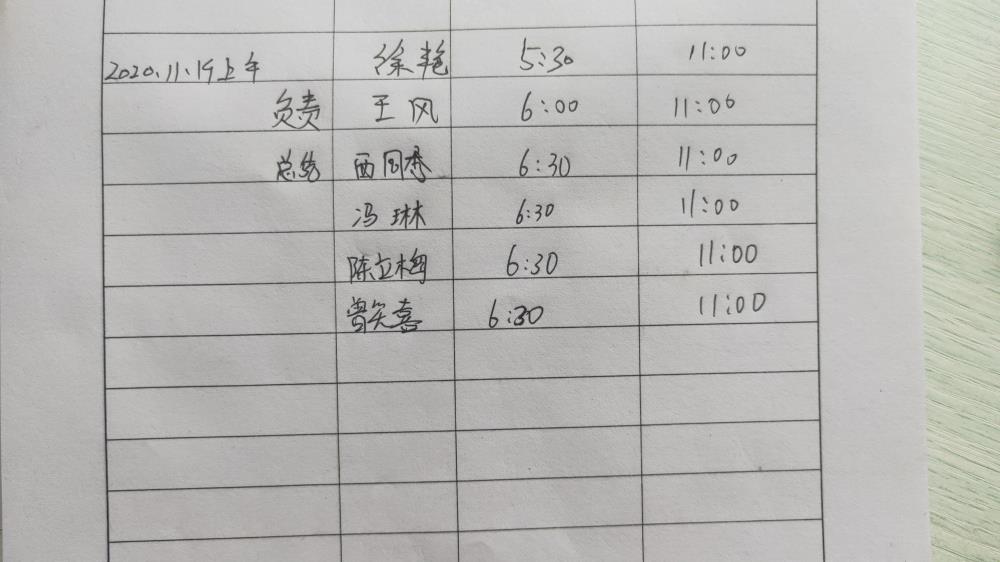 2020.11.19上午 徐艳 5:30 11:00
负责 王风 6:00 11:00
总结 西同秀 6:30 11:00
冯琳 6:30 11:00
陈立梅 6:30 11:00
曾笑喜 6:30 11:00